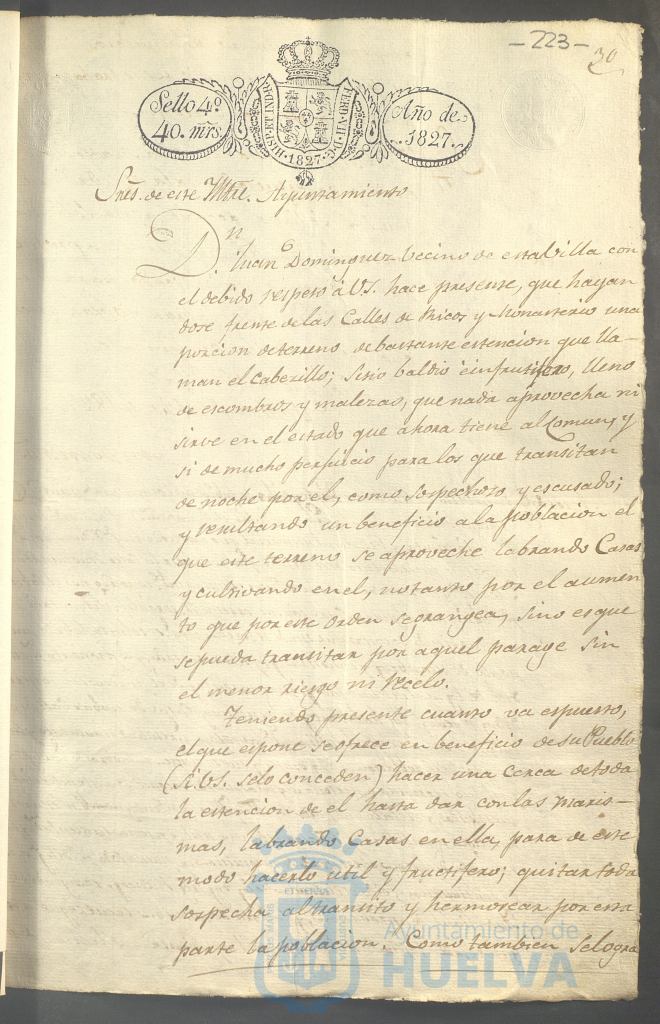 - 223 -
30
Sello 4º
40. mrs.
HISP. ET IND. R.
FERD. VII. D. G.
·1827·
Año de
1827.
Sres. de este Yltre. Ayuntamiento
Dn. Juan Dominguez Vecino de esta Villa con
el debido respeto á VS. hace presente, que hayan
dose frente de las Calles de Ricos y Monasterio una
porcion de terreno de bastante estencion que lla-
man el Cabezillo; sitio baldio é infrutifero, lleno
de escombros y malezas, que nada aprovecha ni
sirve en el estado que ahora tiene al Comun, y
si de mucho perjuicio para los que transitan
de noche por el, como sospechoso y escusado;
y resultando un beneficio a la poblacion el
que este terreno se aproveche labrando Casas
y cultivando en el, no tanto por el aumen
to que por este orden se grangea, sino es que
se pueda transitar por aquel parage sin
el menor riesgo ni recelo.
Teniendo presente cuanto va espuesto,
el que espone se ofrece en beneficio de su Pueblo
(si VS. se lo conceden) hacer una Cerca de toda
la estencion de el hasta dar con las Maris-
mas, labrando Casas en ella, para de este
modo hacerlo util y fructifero; quitar toda
sospecha al transito y hermosear por esta
parte la poblacion. Como tambien se logra
Ayuntamiento de
HUELVA